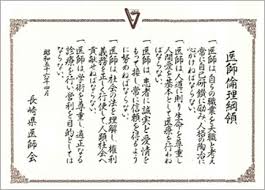 医師倫理綱領
一、医師は自らの職業を天職と考え
常に自己研鑽に励み人格陶冶に
心がけねばならない。
一、医師は人道に則り生命を尊重し
人間愛を基本とし医療を行わね
ばならない。
一、医師は患者に誠実と愛情を
もって接し常に信頼を得るよう
に努めねばならない。
一、医師は社会の法を理解し権利
義務を正しく行使して人類社会へ
貢献せねばならない。
一、医師は学術を尊重し適正なる
診療を行い営利を目的としては
ならない。
昭和五十六年四月
長崎県医師会